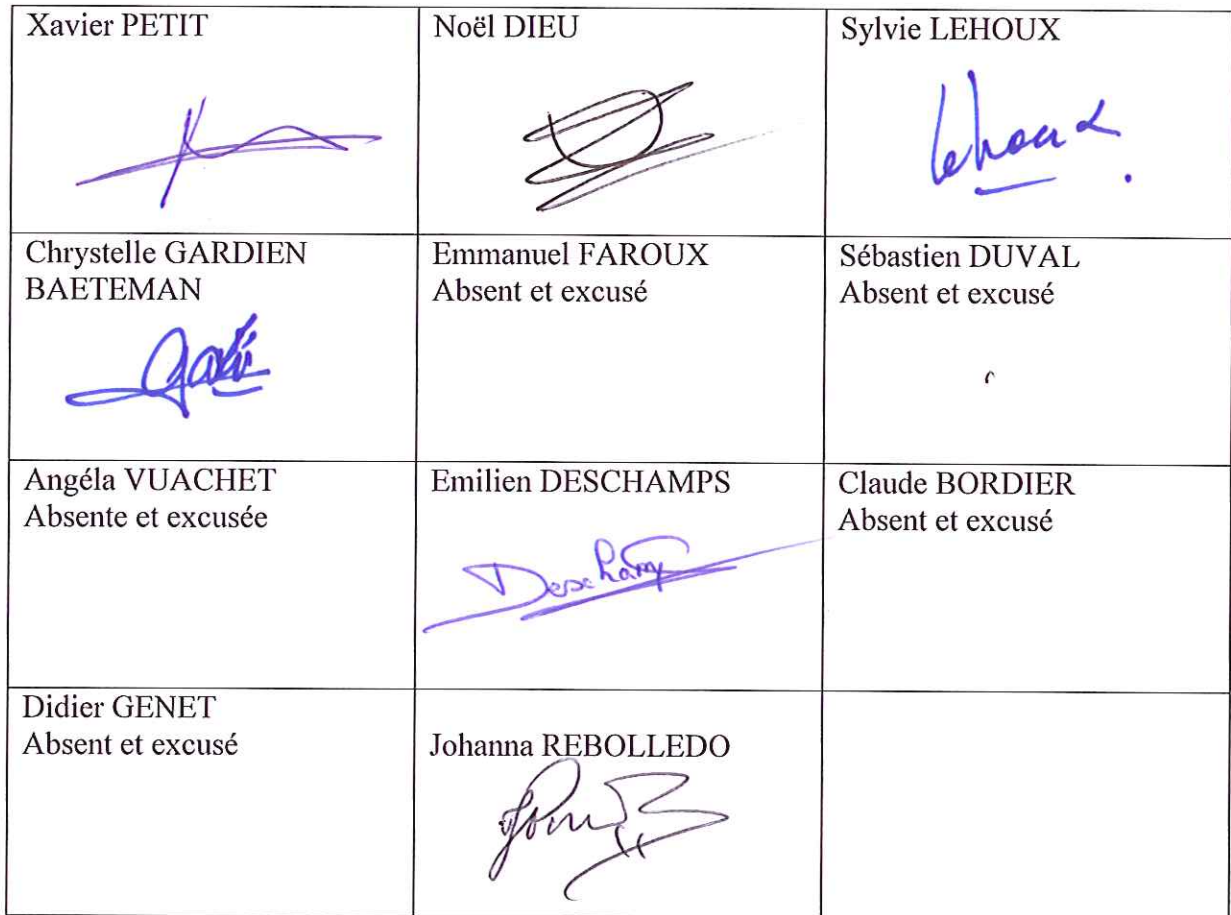 Xavier PETIT
Noël DIEU
Sylvie LEHOUX
Lehoux
Chrystelle GARDIEN
BAETEMAN
Emmanuel FAROUX
Absent et excusé
Sébastien DUVAL
Absent et excusé
Angéla VUACHET
Absente et excusée
Emilien DESCHAMPS
Deschamps
Claude BORDIER
Absent et excusé
Didier GENET
Absent et excusé
Johanna REBOLLEDO